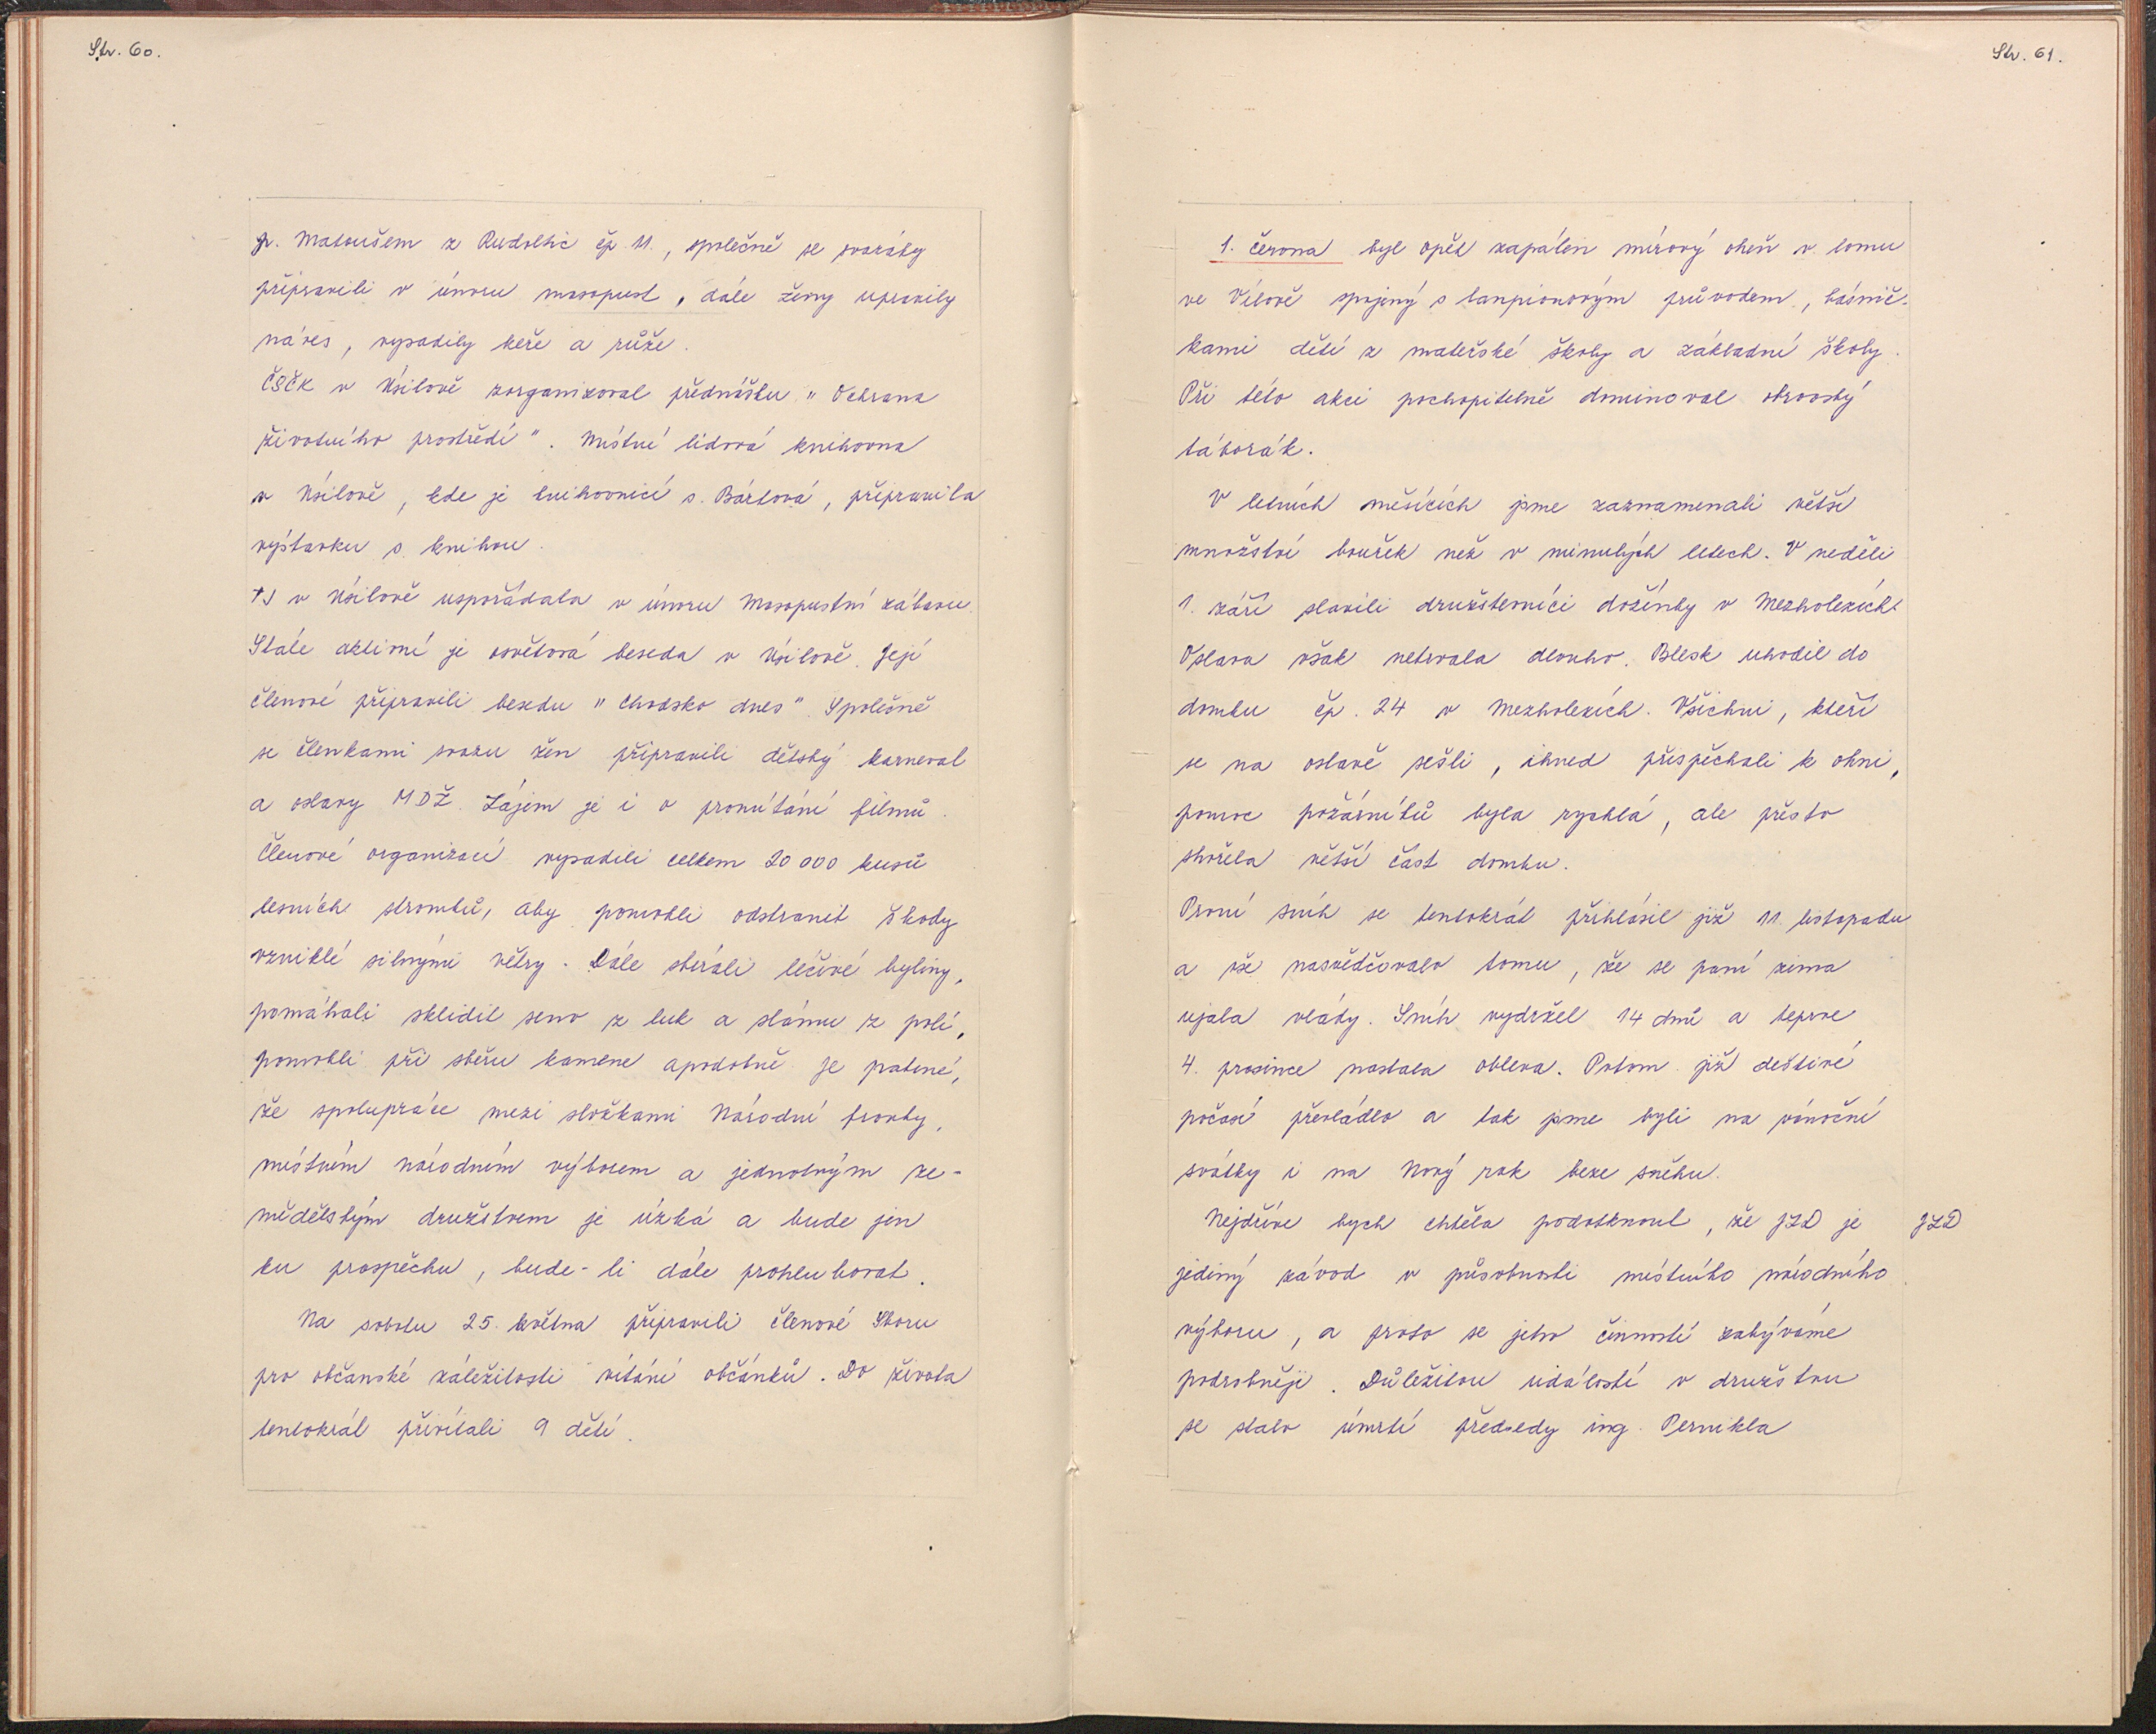 Str. 60.
p. Matoušem z Rudoltic čp. 11., společně se svazáky
připravili v únoru masopust, dále ženy upravily
náves, vysadily keře a růže.
ČSČK v Úsilově zorganizoval přednášku "Ochrana
životního prostředí". Místní lidová knihovna
v Úsilově, kde je knihovnicí s. Bártová, připravila
výstavku s knihou.
TJ v Úsilově uspořádala v únoru Masopustní zábavu.
Stále aktivní je osvětová beseda v Úsilově. Její
členové připravili besedu "Chodsko dnes". Společně
se členkami svazu žen připravili dětský karneval
a oslavy MDŽ. Zájem je i o promítání filmů.
Členové organizací vysadili celkem 20 000 kusů
lesních stromků, aby pomohli odstranit škody
vzniklé silnými větry. Dále sbírali léčivé byliny,
pomáhali sklidit seno z luk a slámu z polí,
pomohli při sběru kamene apodobně. Je patrné,
že spolupráce mezi složkami Národní fronty,
místním národním výborem a jednotným ze-
mědělským družstvem je úzká a bude jen
ku prospěchu, bude-li dále prohlubovat.
Na sobotu 25. května připravili členové Sboru
pro občanské záležitosti vítání občánků. Do života
tentokrát přivítali 9 dětí.
Str. 61.
1. června byl opět zapálen mírový oheň v lomu
ve Vílově spojený s lanpionovým průvodem, básnič-
kami dětí z mateřské školy a základní školy.
Při této akci pochopitelně dominoval obrovský
táborák.
V letních měsících jsme zaznamenali větší
množství bouřek než v minulých letech. V neděli
1. září slavili družstevníci dožínky v Mezholezích.
Oslava však netrvala dlouho. Blesk uhodil do
domku čp. 24 v Mezholezích. Všichni, kteří
se na oslavě sešli, ihned přispěchali k ohni,
pomoc požárníků byla rychlá, ale přesto
shořela větší část domku.
První sníh se tentokrát přihlásil již 11. listopadu
a vše nasvědčovalo tomu, že se paní zima
ujala vlády. Sníh vydržel 14 dnů a teprve
4. prosince nastala obleva. Potom již deštivé
počasí převládlo a tak jsme byli na vánoční
svátky i na Nový rok beze sněhu.
Nejdříve bych chtěla podotknout, že JZD je JZD
jediný závod v působnosti místního národního
výboru, a proto se jeho činností zabýváme
podrobněji. Důležitou událostí v družstvu
se stalo úmrtí předsedy ing. Pernikla